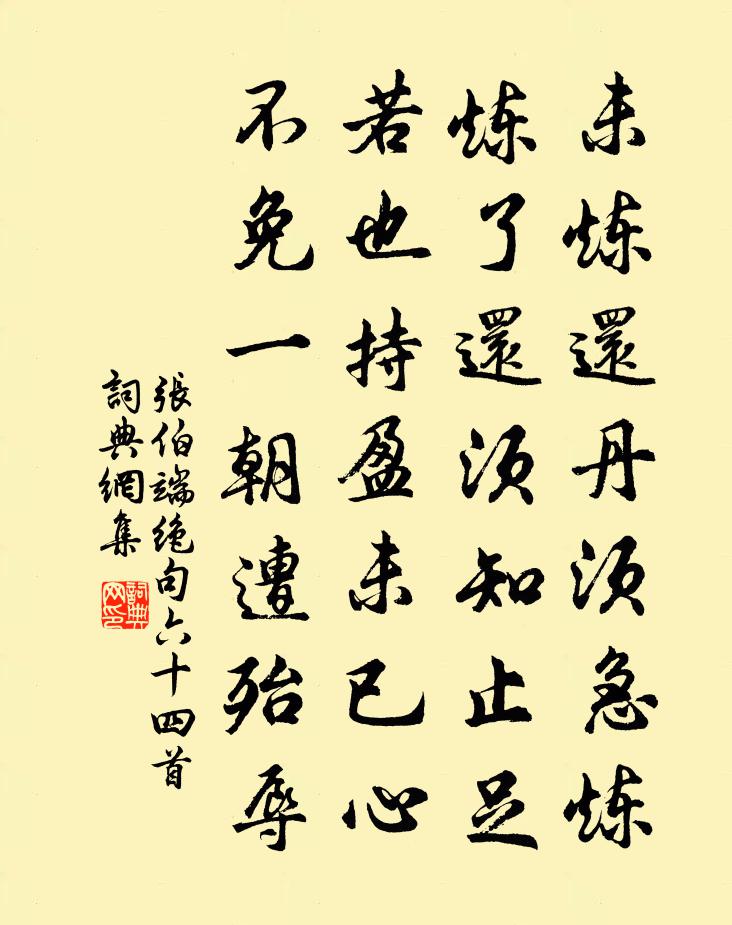 未炼還丹須急炼
炼了還須知止足
若也持盈未已心
不免一朝遭殆辱
張伯端絶句六十四首
詞典網集
詞典網印